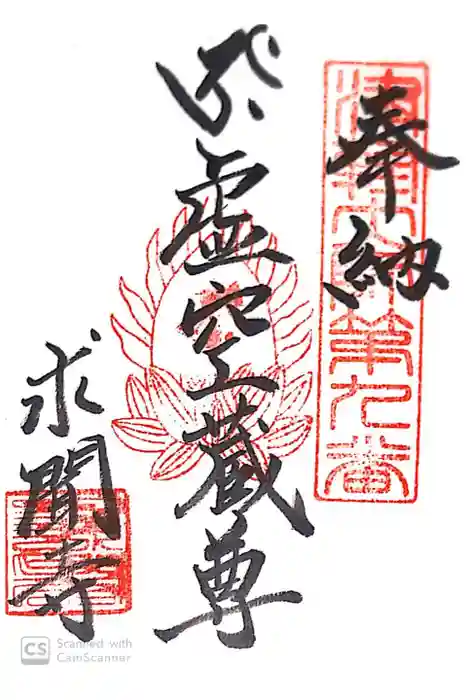 奉納
津軽弘前第九番
虚空蔵尊
求聞寺
CS Scanned with
CamScanner